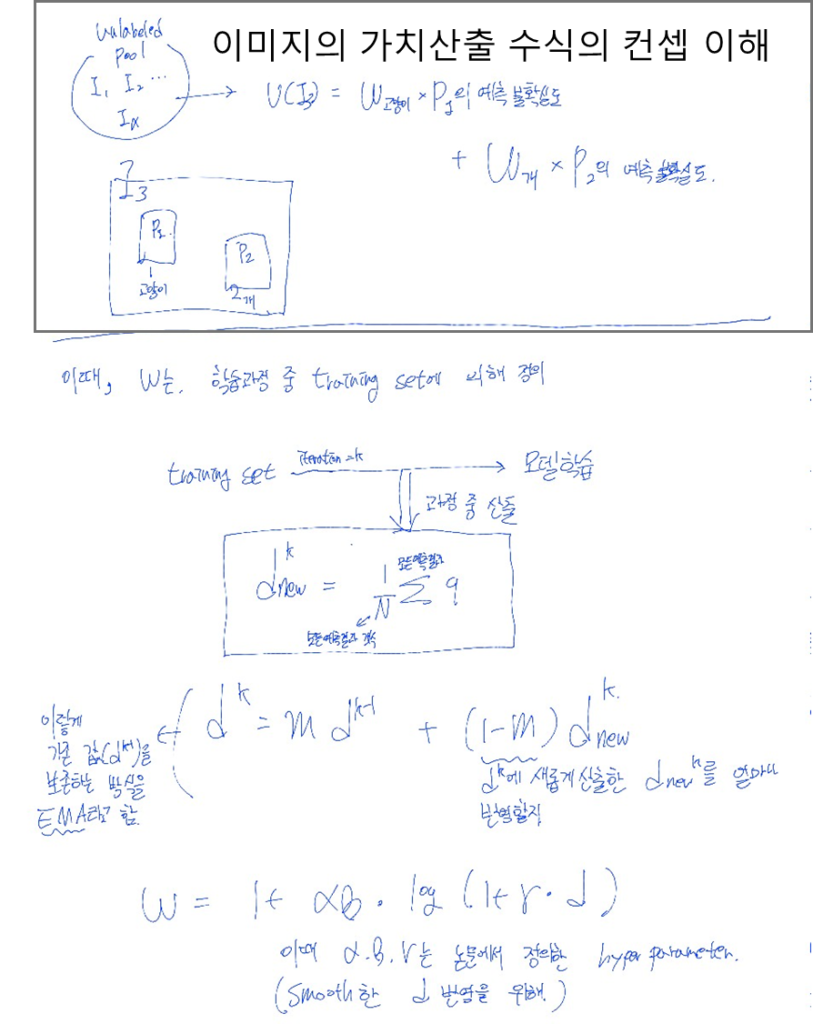 이미지의 가치산출 수식의 컨셉 이해
unlabeled
pool
I₁ I₂ ...
Iα
U(I₃) = W고양이 × P₁의 예측 불확실도
+ W개 × P₂의 예측 불확실도.
I₃
P₁
P₂
고양이
개
이때, W는, 학습과정 중 training set에 의해 정의
training set iteration=k 모델학습
과정 중 산출
d^k_new = 1/N Σ q
모든예측결과
모든예측결과 갯수
d^k = m d^(k-1) + (1-m) d^k_new
이렇게
기존 값(d^(k-1))을
보존하는 방식을
EMA라고 함.
d^k에 새롭게 산출한 d_new^k를 얼마나
반영할지
W = 1 + αβ · log (1 + γ · d)
이때 α.β.γ는 논문에서 정의한 hyper parameter.
(Smooth한 d 반영을 위해.)